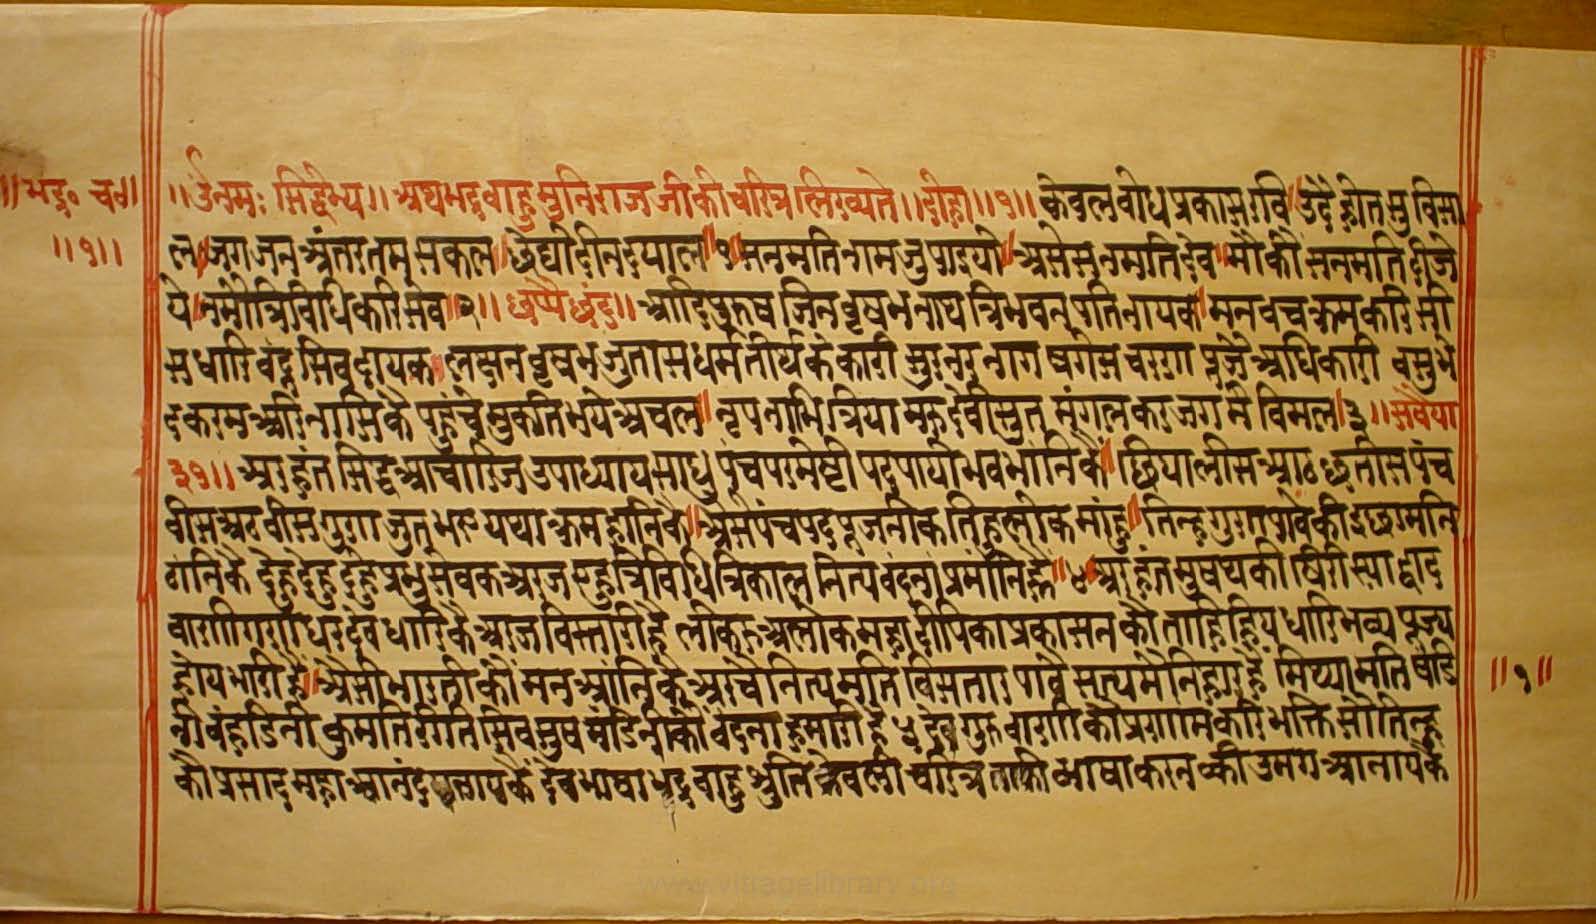 ॥भद्र॰ च॰॥
॥१॥
॥ॐनमः सिद्धेभ्य॥ अथ भद्रबाहु मुनिराज जी की चरित्र लिख्यते॥दोहा॥१॥ केवलबोध प्रकास रवि उदै होत सु विसा
ल जगजन अंतर तम सकल छेद्यो दीनदयाल १ सनमति नाम जु पाइयो असे सनमति देव मोकौ सनमति दीजे
ये नमौ त्रिविधि करि सेव २॥छप्पै छंद॥ आदिपुरुष जिन वृषभनाथ त्रिभवनपति नायक मन वच क्रम करि सी
स धारि वंदू सिवदायक लक्षन वृषभ जु तास धर्म तीर्थंकंकारी सुर नर नाग षगेस चरण पूजै अधिकारी वसु भे
द करम अरि नासि कै पहुंचे मुकति भये अचल नृप नाभि त्रिया मरुदेवी सुत मंगल कर जग मै विमल ३॥सवैया
३१॥ अरहंत सिद्ध आचारिज उपाध्याय साधु पंच परमेष्टी पद पायो भव भांनिकै छियालीस आठ छतीस पंच
वीस अठवीस गुण जुत भए यथाक्रम हानिकै अैसै पंच पद पूजनीक तिहू लोक मांहु तिन्ह गुरत पावे की इछा मनि
ठांनिकै देहु देहु देहु प्रभु सेवक अरज एहु त्रिविधि त्रिकाल नित्य वंदना प्रमांनिहै ४ अरहंत मुषथकी षिरी स्याद्वाद
वाणी गणधरदेव धारिकै अरज विस्तारी है लोक रु अलोक महा दीपिका प्रकासन कौ ताहि हिय धारि भव्य पूज्य
होय भारी है अैसी भारती कौं मन आंनिकै अरचै नित्य मति विसतार पावै सत्य मै निहार है मिथ्यामति षंडि
॥१॥
नी वंहडिनी कुमति रीति सिव सुष मंडिनी कौ वंदना हमारी है ५ देव गुरु वाणी कौ प्रणाम करि भक्ति सौ तिन्ह
कौ प्रसाद महा आनंद पायकै देव भाषा भद्रबाहु श्रुतिकेवली चरित्र ताकी भाषा करन की उमग आनायकै
www.vitragelibrary.org